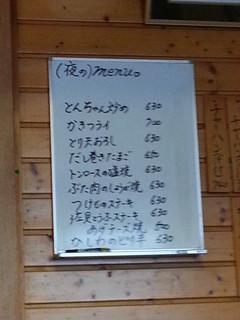 (夜の)menu。
とんちゃん炒め 630
かきフライ 700
とり天おろし 630
だし巻きたまご 630
トンロースの塩焼 630
ぶた肉のしょうが焼 630
つけものステーキ 630
佐見とうふステーキ 630
あげチーズ焼 500
630
チャーハン